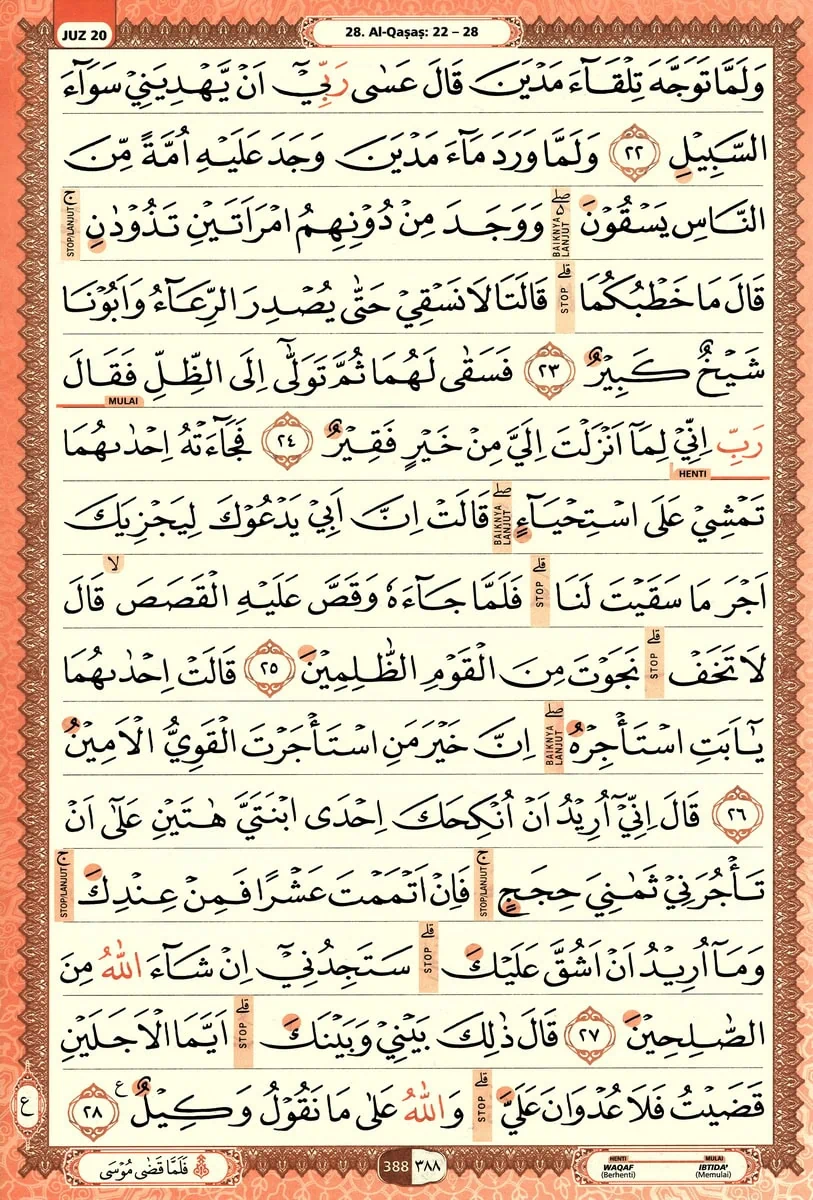 JUZ 20
28. Al-Qaṣaṣ: 22 – 28
وَلَمَّا تَوَجَّهَ تِلْقَاۤءَ مَدْيَنَ قَالَ عَسٰى رَبِّيْٓ اَنْ يَّهْدِيَنِيْ سَوَاۤءَ
السَّبِيْلِ ٢٢ وَلَمَّا وَرَدَ مَاۤءَ مَدْيَنَ وَجَدَ عَلَيْهِ اُمَّةً مِّنَ
النَّاسِ يَسْقُوْنَ ۖ ەۗ BAIKNYA LANJUT وَوَجَدَ مِنْ دُوْنِهِمُ امْرَاَتَيْنِ تَذُوْدٰنِ ۚ STOP/LANJUT
قَالَ مَا خَطْبُكُمَا ۗ STOP قَالَتَا لَا نَسْقِيْ حَتّٰى يُصْدِرَ الرِّعَاۤءُ وَاَبُوْنَا
شَيْخٌ كَبِيْرٌ ٢٣ فَسَقٰى لَهُمَا ثُمَّ تَوَلّٰىٓ اِلَى الظِّلِّ فَقَالَ
MULAI
رَبِّ اِنِّيْ لِمَآ اَنْزَلْتَ اِلَيَّ مِنْ خَيْرٍ فَقِيْرٌ ٢٤ فَجَاۤءَتْهُ اِحْدٰىهُمَا
HENTI
تَمْشِيْ عَلَى اسْتِحْيَاۤءٍ ۖ BAIKNYA LANJUT قَالَتْ اِنَّ اَبِيْ يَدْعُوْكَ لِيَجْزِيَكَ
اَجْرَ مَا سَقَيْتَ لَنَا ۗ STOP فَلَمَّا جَاۤءَهٗ وَقَصَّ عَلَيْهِ الْقَصَصَ ۙ قَالَ
لَا تَخَفْ ۗ STOP نَجَوْتَ مِنَ الْقَوْمِ الظّٰلِمِيْنَ ٢٥ قَالَتْ اِحْدٰىهُمَا
يٰٓاَبَتِ اسْتَأْجِرْهُ ۖ BAIKNYA LANJUT اِنَّ خَيْرَ مَنِ اسْتَأْجَرْتَ الْقَوِيُّ الْاَمِيْنُ
٢٦ قَالَ اِنِّيْٓ اُرِيْدُ اَنْ اُنْكِحَكَ اِحْدَى ابْنَتَيَّ هٰتَيْنِ عَلٰٓى اَنْ
تَأْجُرَنِيْ ثَمٰنِيَ حِجَجٍ ۚ STOP/LANJUT فَاِنْ اَتْمَمْتَ عَشْرًا فَمِنْ عِنْدِكَ ۚ STOP/LANJUT
وَمَآ اُرِيْدُ اَنْ اَشُقَّ عَلَيْكَ ۗ STOP سَتَجِدُنِيْٓ اِنْ شَاۤءَ اللّٰهُ مِنَ
الصّٰلِحِيْنَ ٢٧ قَالَ ذٰلِكَ بَيْنِيْ وَبَيْنَكَ ۗ STOP اَيَّمَا الْاَجَلَيْنِ
قَضَيْتُ فَلَا عُدْوَانَ عَلَيَّ ۗ STOP وَاللّٰهُ عَلٰى مَا نَقُوْلُ وَكِيْلٌ ع ٢٨
ع
فَلَمَّا قَضٰى مُوْسَى
388 ٣٨٨
HENTI WAQAF (Berhenti)
MULAI IBTIDA' (Memulai)